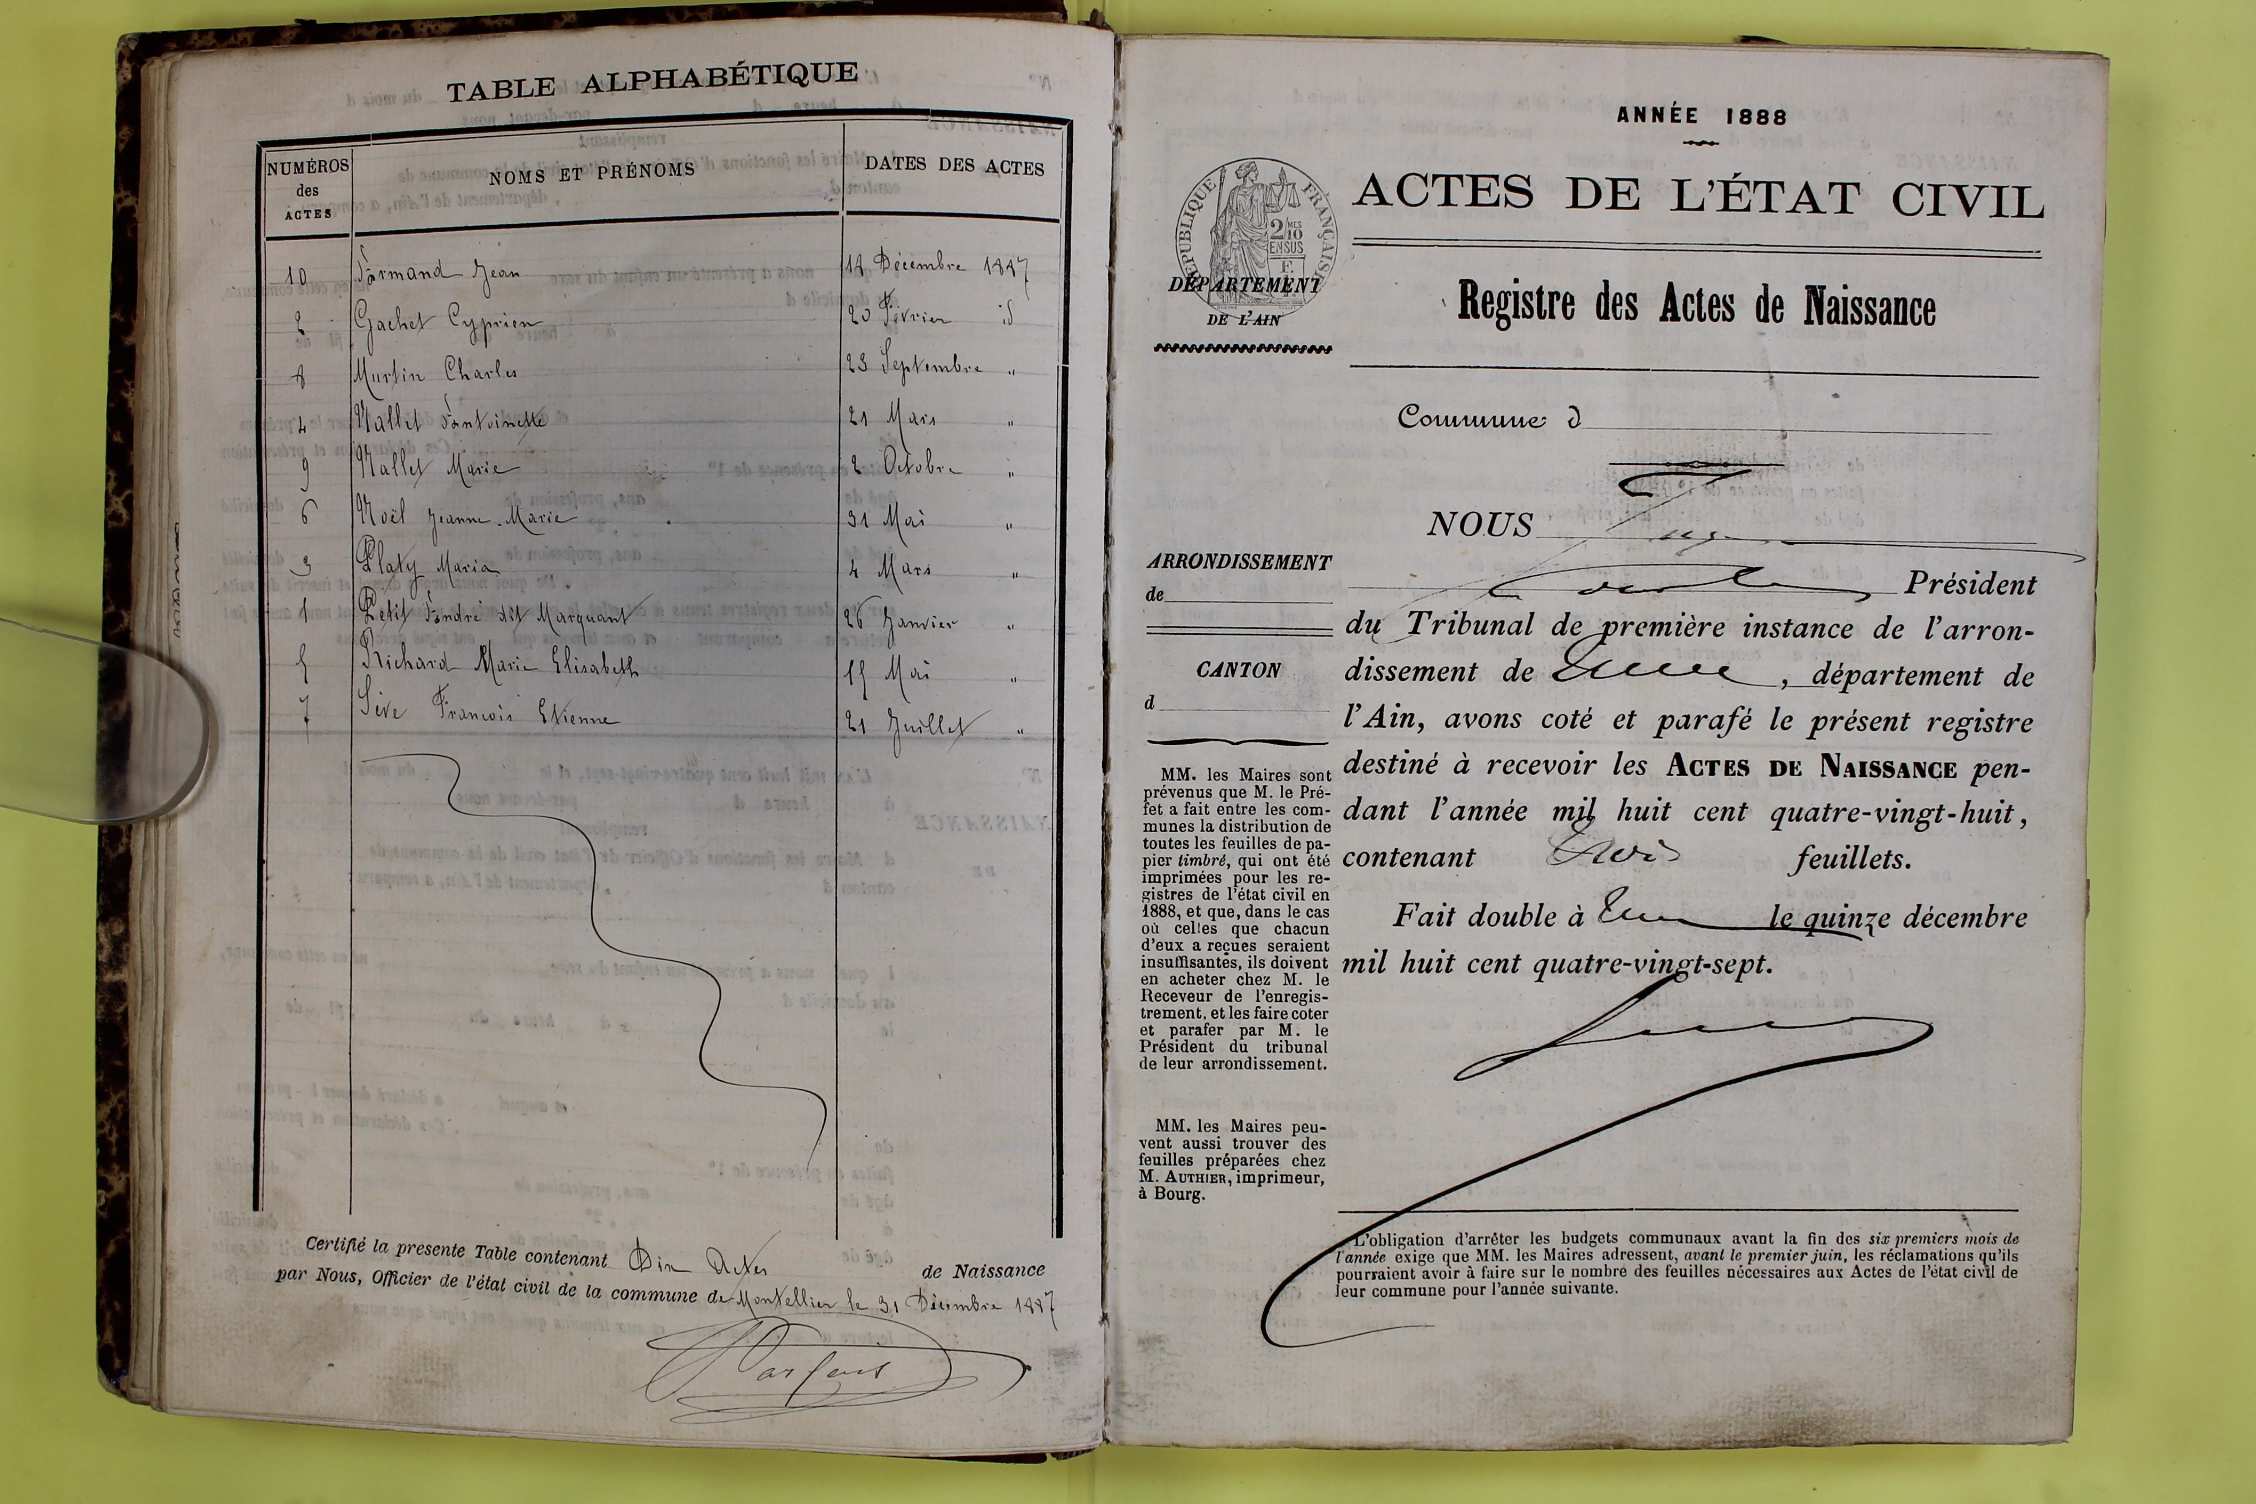 TABLE ALPHABÉTIQUE
NUMÉROS des ACTES NOMS ET PRÉNOMS DATES DES ACTES
10 Armand Jean 14 Décembre 1887
2 Gachet Cyprien 20 Février id
8 Murtin Charles 23 Septembre "
4 Nallet Antoinette 21 Mars "
9 Nallet Marie 2 Octobre "
6 Noël Jeanne-Marie 31 Mai "
3 Platy Maria 4 Mars "
1 Petit André dit Marquant 26 Janvier "
5 Richard Marie Elisabeth 15 Mai "
7 Sève François Etienne 21 Juillet "
Certifié la presente Table contenant Dix Actes de Naissance
par Nous, Officier de l'état civil de la commune de Montellier le 31 Décembre 1887
ANNÉE 1888
RÉPUBLIQUE FRANÇAISE
2/10 MES
EN SUS
ACTES DE L'ÉTAT CIVIL
DÉPARTEMENT
DE L'AIN
Registre des Actes de Naissance
Commune d
NOUS
ARRONDISSEMENT
de
Président
du Tribunal de première instance de l'arron-
dissement de , département de
l'Ain, avons coté et parafé le présent registre
destiné à recevoir les ACTES DE NAISSANCE pen-
dant l'année mil huit cent quatre-vingt-huit,
contenant trois feuillets.
Fait double à le quinze décembre
mil huit cent quatre-vingt-sept.
CANTON
d
MM. les Maires sont
prévenus que M. le Pré-
fet a fait entre les com-
munes la distribution de
toutes les feuilles de pa-
pier timbré, qui ont été
imprimées pour les re-
gistres de l'état civil en
1888, et que, dans le cas
où celles que chacun
d'eux a reçues seraient
insuffisantes, ils doivent
en acheter chez M. le
Receveur de l'enregis-
trement, et les faire coter
et parafer par M. le
Président du tribunal
de leur arrondissement.
MM. les Maires peu-
vent aussi trouver des
feuilles préparées chez
M. AUTHIER, imprimeur,
à Bourg.
L'obligation d'arrêter les budgets communaux avant la fin des six premiers mois de
l'année exige que MM. les Maires adressent, avant le premier juin, les réclamations qu'ils
pourraient avoir à faire sur le nombre des feuilles nécessaires aux Actes de l'état civil de
leur commune pour l'année suivante.